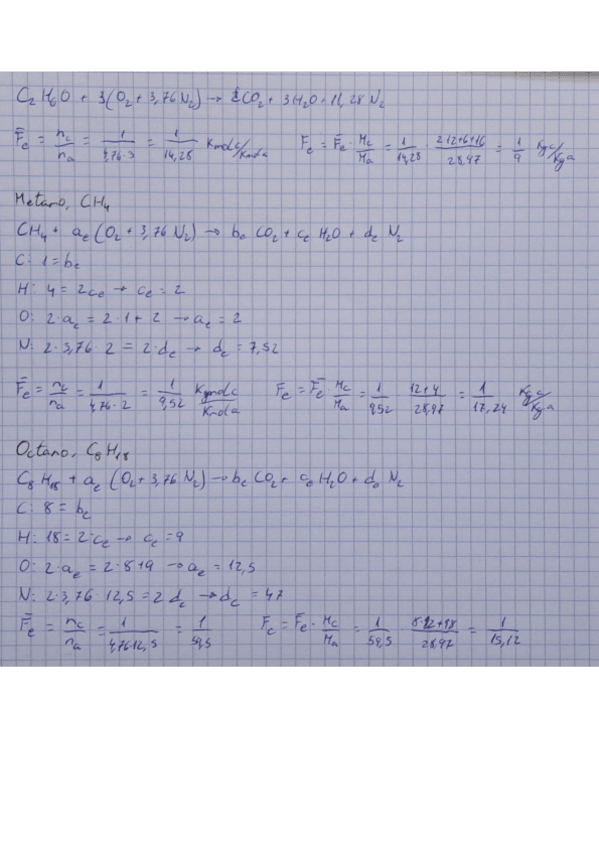 C₂H₆O + 3(O₂ + 3,76 N₂) → 2CO₂ + 3H₂O + 11,28 N₂
F̄e = nc/na = 1/(4,76·3) = 1/14,28 Kmolc/Kmola Fe = F̄e · Mc/Ma = 1/14,28 · (2·12+6+16)/28,97 = 1/9 Kgc/Kga
Metano, CH₄
CH₄ + ae (O₂ + 3,76 N₂) → be CO₂ + ce H₂O + de N₂
C: 1 = be
H: 4 = 2ce → ce = 2
O: 2·ae = 2·1 + 2 → ae = 2
N: 2·3,76·2 = 2·de → de = 7,52
F̄e = nc/na = 1/(4,76·2) = 1/9,52 Kmolc/Kmola Fe = F̄e · Mc/Ma = 1/9,52 · (12+4)/28,97 = 1/17,24 Kgc/Kga
Octano, C₈H₁₈
C₈H₁₈ + ae (O₂ + 3,76 N₂) → be CO₂ + ce H₂O + de N₂
C: 8 = be
H: 18 = 2·ce → ce = 9
O: 2·ae = 2·8+9 → ae = 12,5
N: 2·3,76·12,5 = 2 de → de = 47
F̄e = nc/na = 1/(4,76·12,5) = 1/59,5 Fe = F̄e · Mc/Ma = 1/59,5 · (8·12+18)/28,97 = 1/15,12